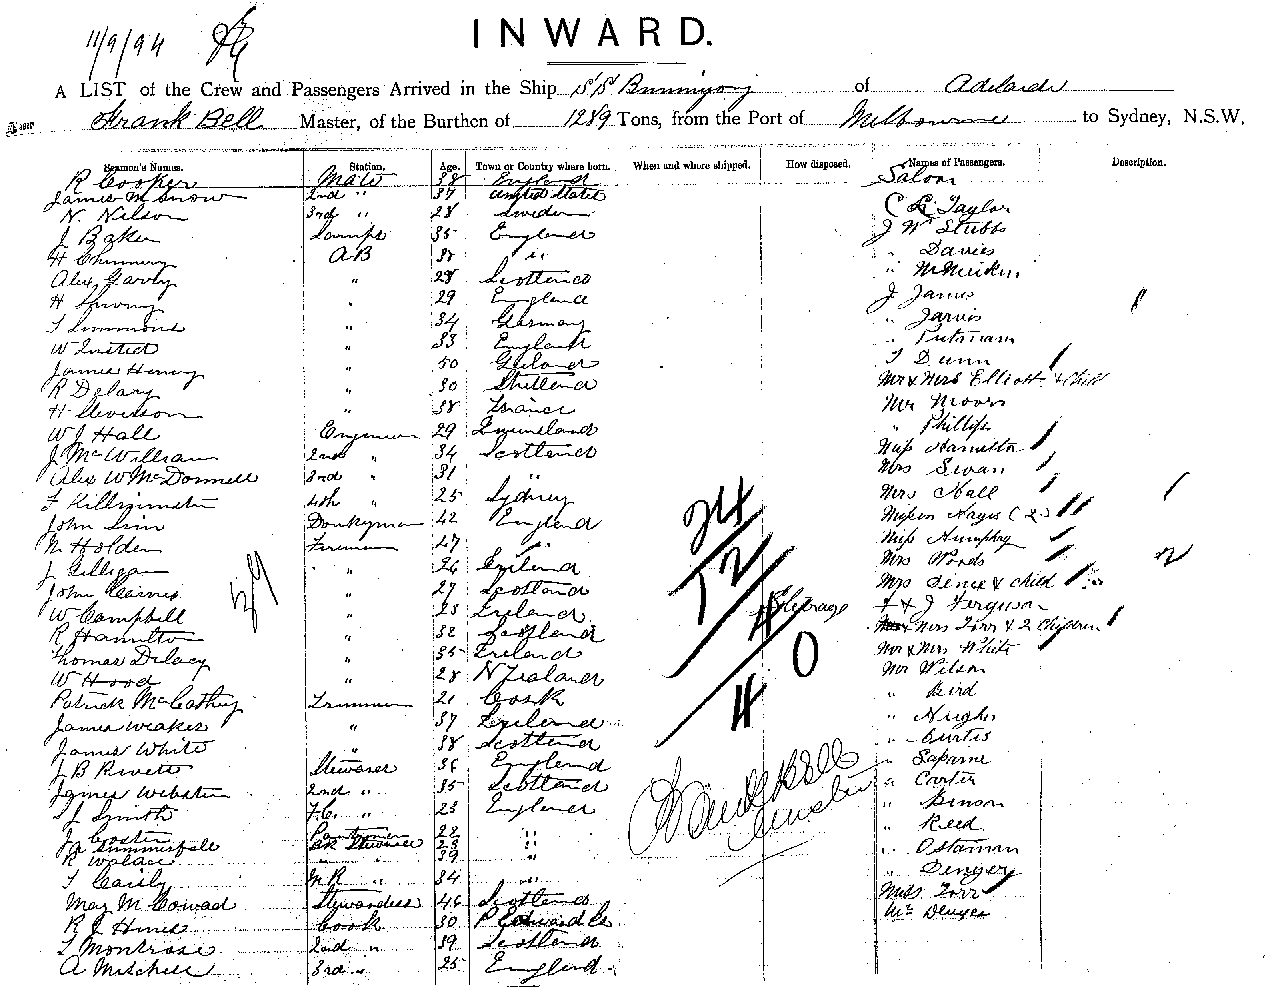 11/9/94
INWARD.
A LIST of the Crew and Passengers Arrived in the Ship SS Buninyong of Adelaide
Frank Bell Master, of the Burthen of 1289 Tons, from the Port of Melbourne to Sydney, N.S.W.
Seamen's Names. Station. Age. Town or Country where born. When and where shipped. How disposed. Names of Passengers. Description.
R Cooker Mate 38 England Saloon
James M Snow 2nd " 37 United States
N. Nilson 3rd " 28 Sweden C R Taylor
J Baker Lamps 35 England J W Stubbs
H AB 38 " " Davies
Alex 28 Scotland "
H " 29 England J James
T Simmons " 34 Germany " Jarvis
W " 33 England " Putman
James Henry " 50 T Dunn
R Delary " 30 Shetland Mr & Mrs Elliott & Child
H Steverson " 38 France Mr Moore
W J Hall Engineer 29 Queensland " Phillips
J McWilliam 2nd " 34 Scotland Miss Hamilton
Alex W McDonnell 3rd " 31 " Mrs Swan
F 4th " 25 Sydney Mrs Hall
John Sim Donkeyman 42 England Misses Hayes (2)
N Holden Fireman 27 " Miss Humphry
J Gilligan " 26 Ireland Mrs Woods
John Cairns " 27 Scotland Mrs & child
W Campbell " 23 Ireland Steerage F & J Ferguson
R Hamilton " 32 Scotland Mrs Torr & 2 Children
Thomas Delacy " 35 Ireland Mr & Mrs White
W Hood " 28 N Zealand Mr Wilson
Patrick McCathy Trimmer 21 Cork "
James Weaker " 37 Ireland " Hughes
James White " 38 Scotland " Curtis
J B Rivett Steward 36 England "
James Webster 2nd " 35 Scotland " Carter
J Smith F.C. " 23 England " Benson
J Coster Pantryman 22 " " Reed
A Summerfell Bk Steward 23 "
R Wallace " 39 "
T Caisly M R " 34 " " Denyer
May M Cowad Stewardess 46 Scotland Miss Torr
R J Hines Cook 30 P Edward Is Mr Denyer
T Montrose 2nd " 39 Scotland
A Mitchell 3rd " 25 England
39
24
12
4
0
4
2
Frank Bell